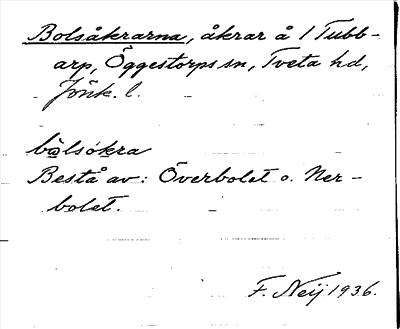 Bolsåkrarna, åkrar å 1 Tubb-
arp, Öggestorps sn, Tveta hd,
Jönk. l.
bo̲lsók̲ra
Bestå av: Överbolet o. Ner-
bolet.
F. Neij 1936.